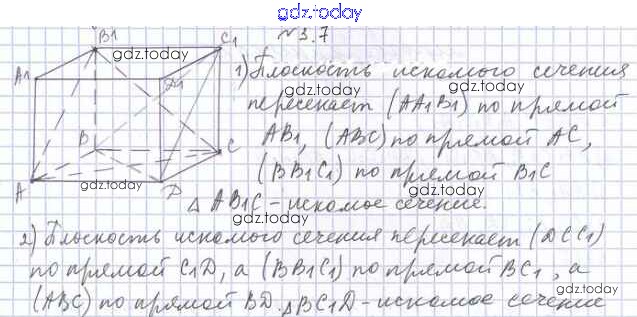 gdz.today
B1 C1 №3.7
gdz.today
A1 D1 1) Плоскость искомого сечения
gdz.today
пересекает (AA1B1) по прямой
B AB1, (ABC) по прямой AC,
C (BB1C1) по прямой B1C
A gdz.today D gdz.today
△ AB1C - искомое сечение.
2) Плоскость искомого сечения пересекает (DCC1)
gdz.today gdz.today
по прямой C1D, а (BB1C1) по прямой BC1, а
(ABC) по прямой BD. △BC1D - искомое сечение
gdz.today